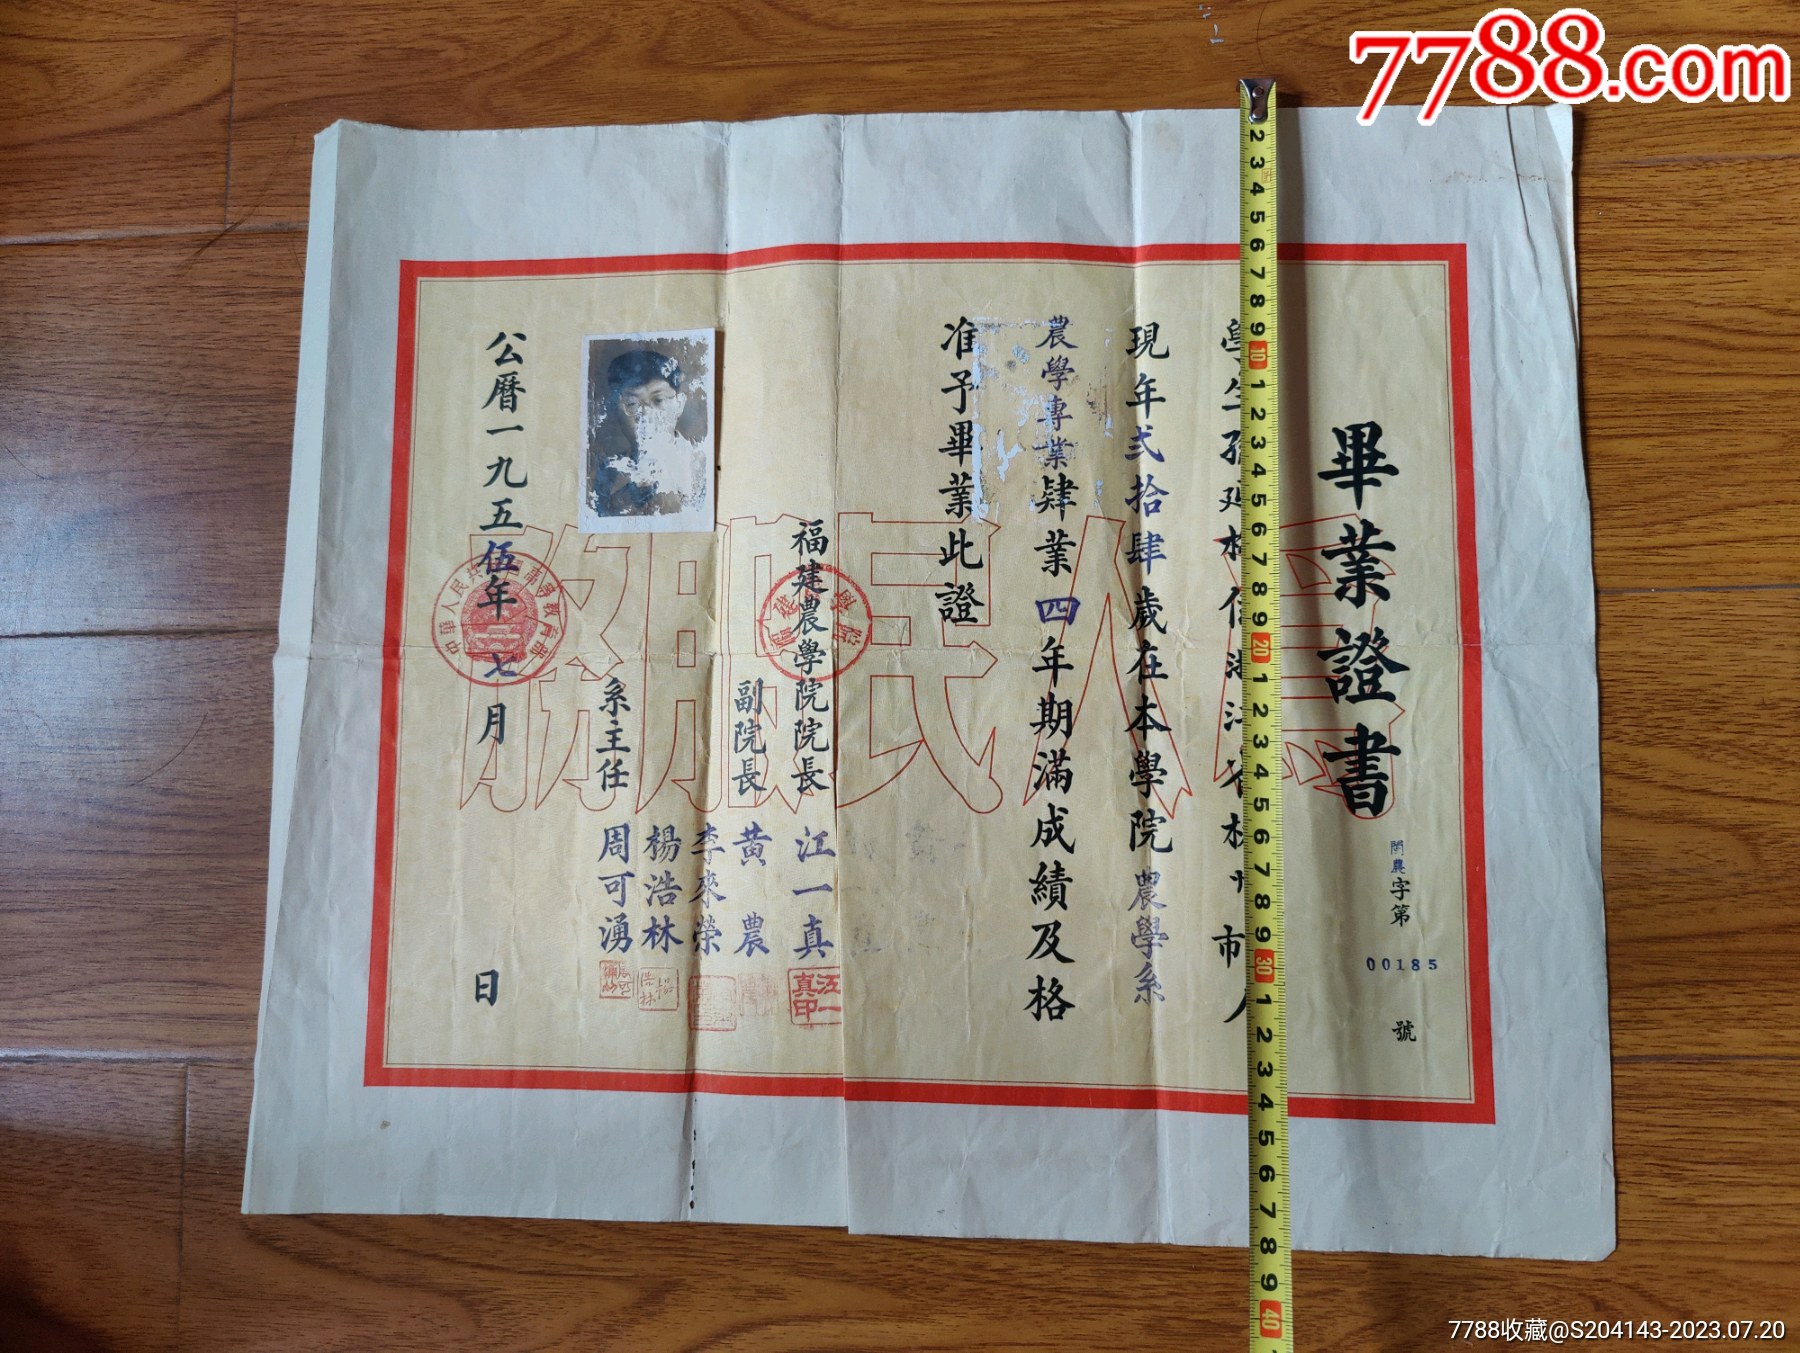 7788.com
畢業證書
閩農字第
00185
號
學生孫延 浙江省杭州市人
現年弍拾肆歲在本學院農學系
農學專業肄業四年期滿成績及格
准予畢業此證
福建農學院院長 江一真
副院長 黃農
李來榮
楊浩林
系主任 周可湧
公曆一九五伍年 七月 日
為人民服務
中華人民共和國高等教育部
福建農學院
江一真印
浩林
7788收藏@S204143-2023.07.20